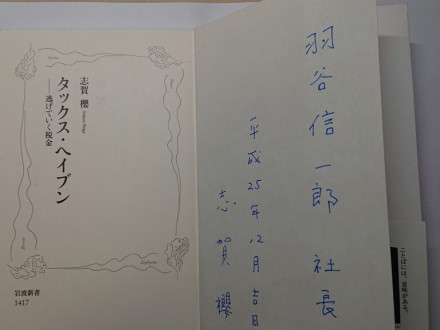 羽谷信一郎 社長
平成25年12月吉日
志賀 櫻
志賀 櫻
タックス・ヘイブン
——逃げていく税金
岩波新書
1417
ことばには、意味がある。